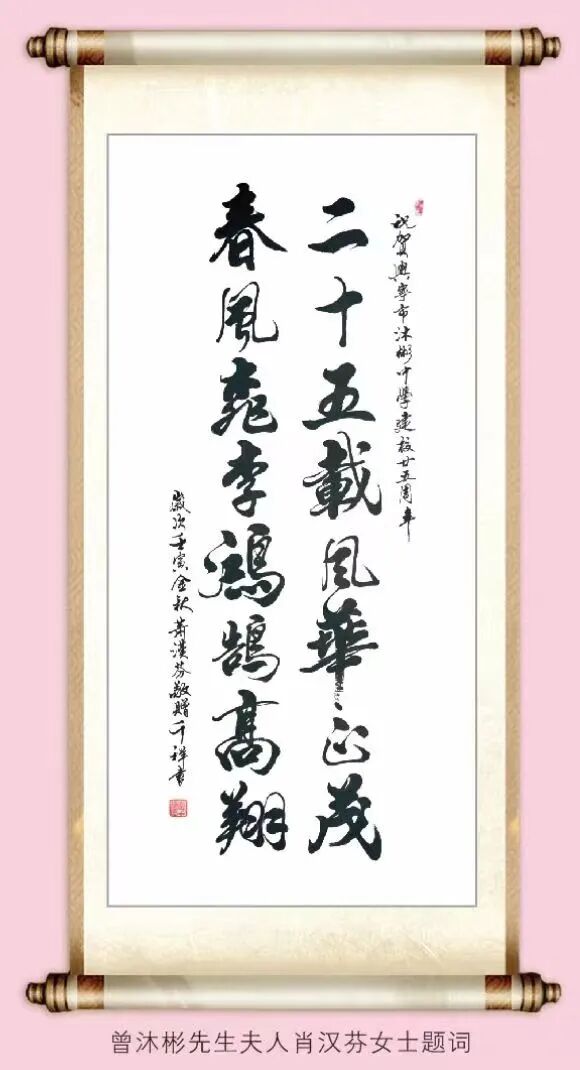 祝贺興寧市沐彬中學建校廿五周年
二十五載風華正茂
春風桃李鴻鵠高翔
歲次壬寅金秋肖漢芬敬贈千祥書
曾沐彬先生夫人肖汉芬女士题词